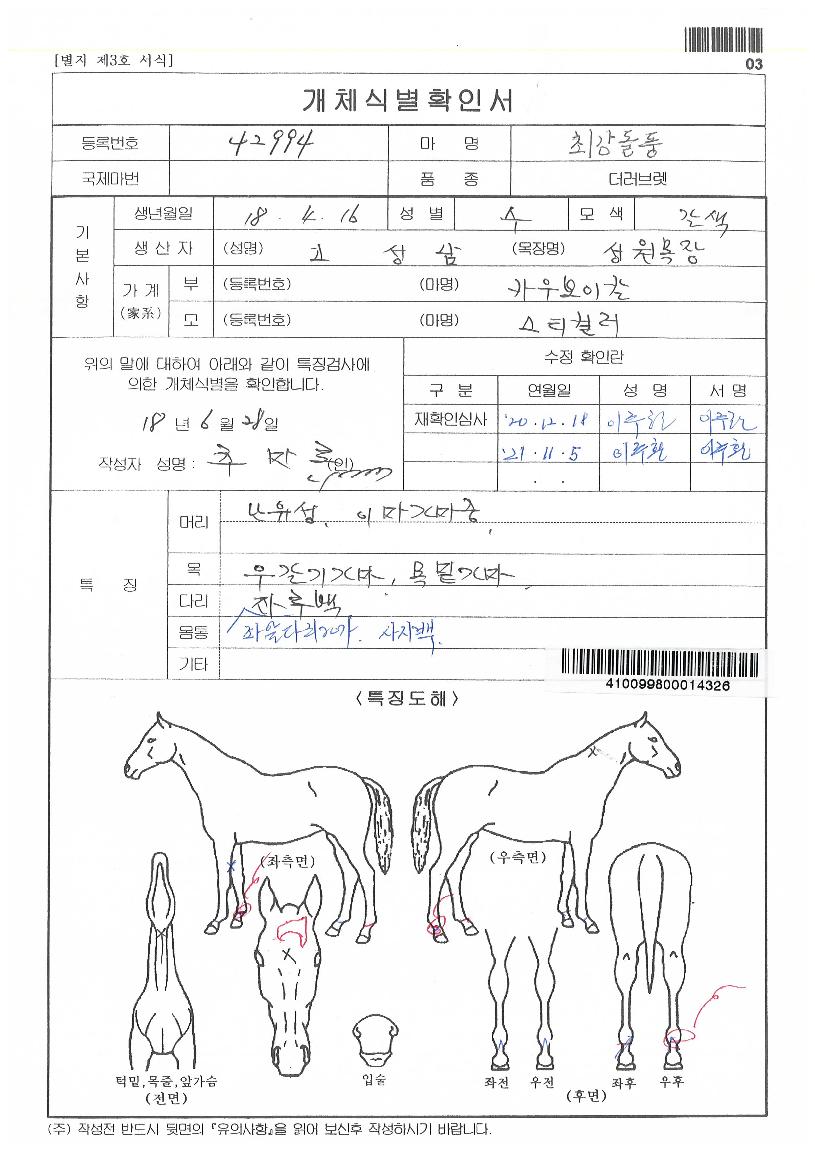 03
[별지 제3호 서식]
개체식별확인서
등록번호 42994 마 명 최강돌풍
국제마번 품 종 더러브렛
기본사항
생년월일 18 . 4 . 16 성 별 수 모 색 갈색
생 산 자 (성명) 고 성 삼 (목장명) 성원목장
가 계 (家系) 부 (등록번호) (마명) 카우보이칼
모 (등록번호) (마명) 스티컬러
위의 말에 대하여 아래와 같이 특징검사에
의한 개체식별을 확인합니다.
18 년 6 월 28 일
작성자 성명 : (인)
수정 확인란
구 분 연월일 성 명 서 명
재확인심사 '20 . 12 . 18
'21 . 11 . 5 이주환 이주환
. .
특 징
머리 난유성, 이마가마중
목 우갈기가마, 목밑가마
다리 사루백
몸통 좌앞다리가마. 사지백.
기타
410099800014326
<특징도해>
(좌측면) (우측면)
턱밑,목줄,앞가슴
(전면)
입술
좌전 우전 좌후 우후
(후면)
(주) 작성전 반드시 뒷면의 『유의사항』을 읽어 보신후 작성하시기 바랍니다.